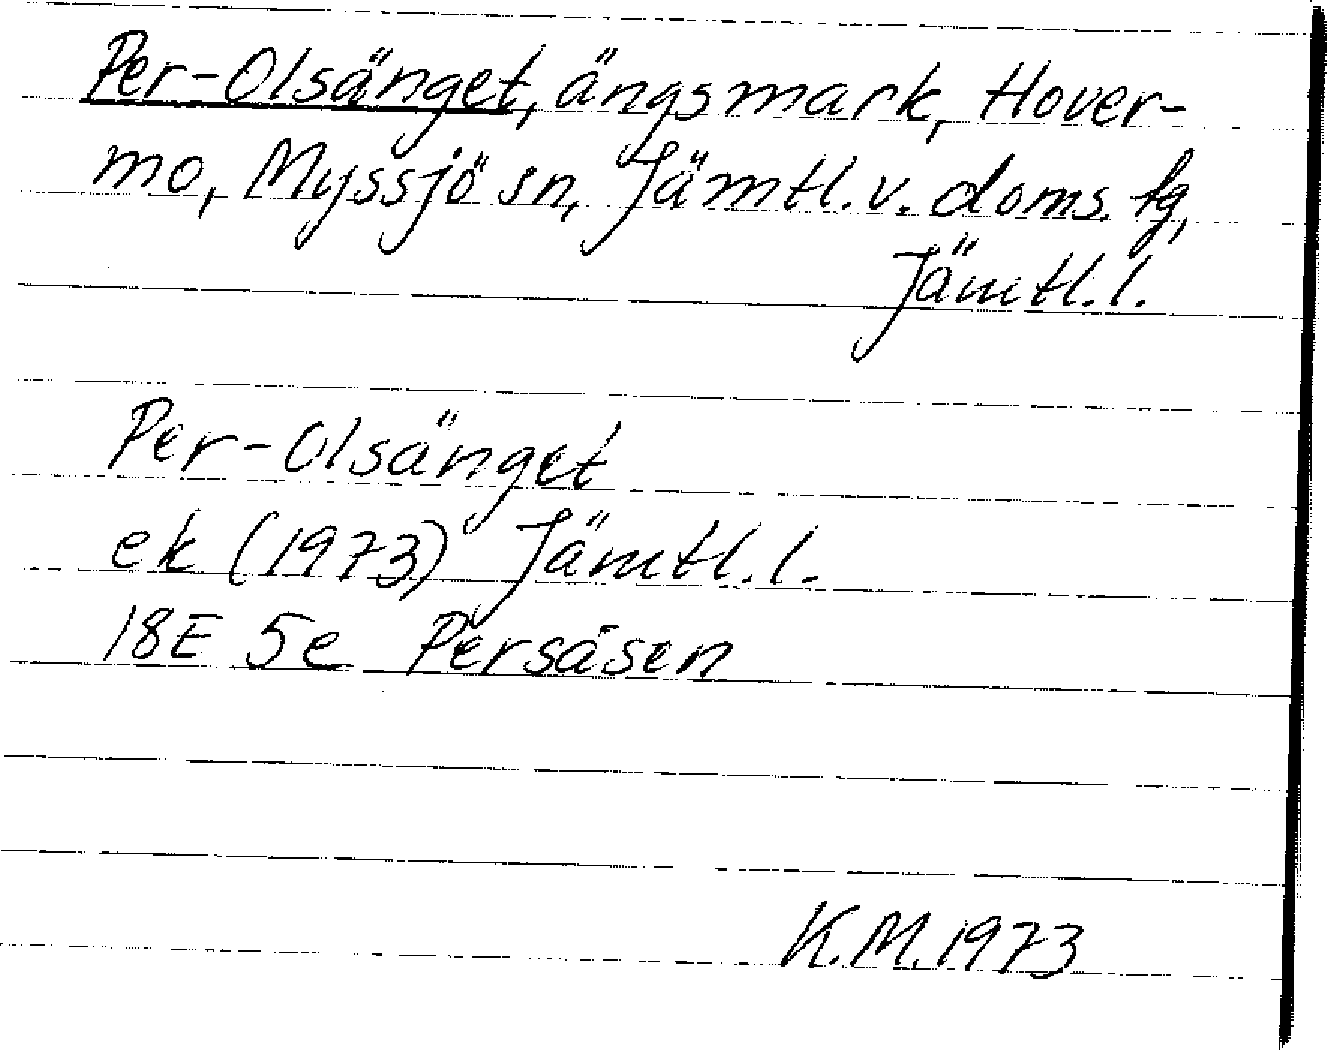 Per-Olsänget, ängsmark, Hover-
mo, Myssjö sn, Jämtl. v. doms. fg,
Jämtl. l.
Per-Olsänget
ek (1973) Jämtl. l.
18E 5e Persåsen
K.M. 1973